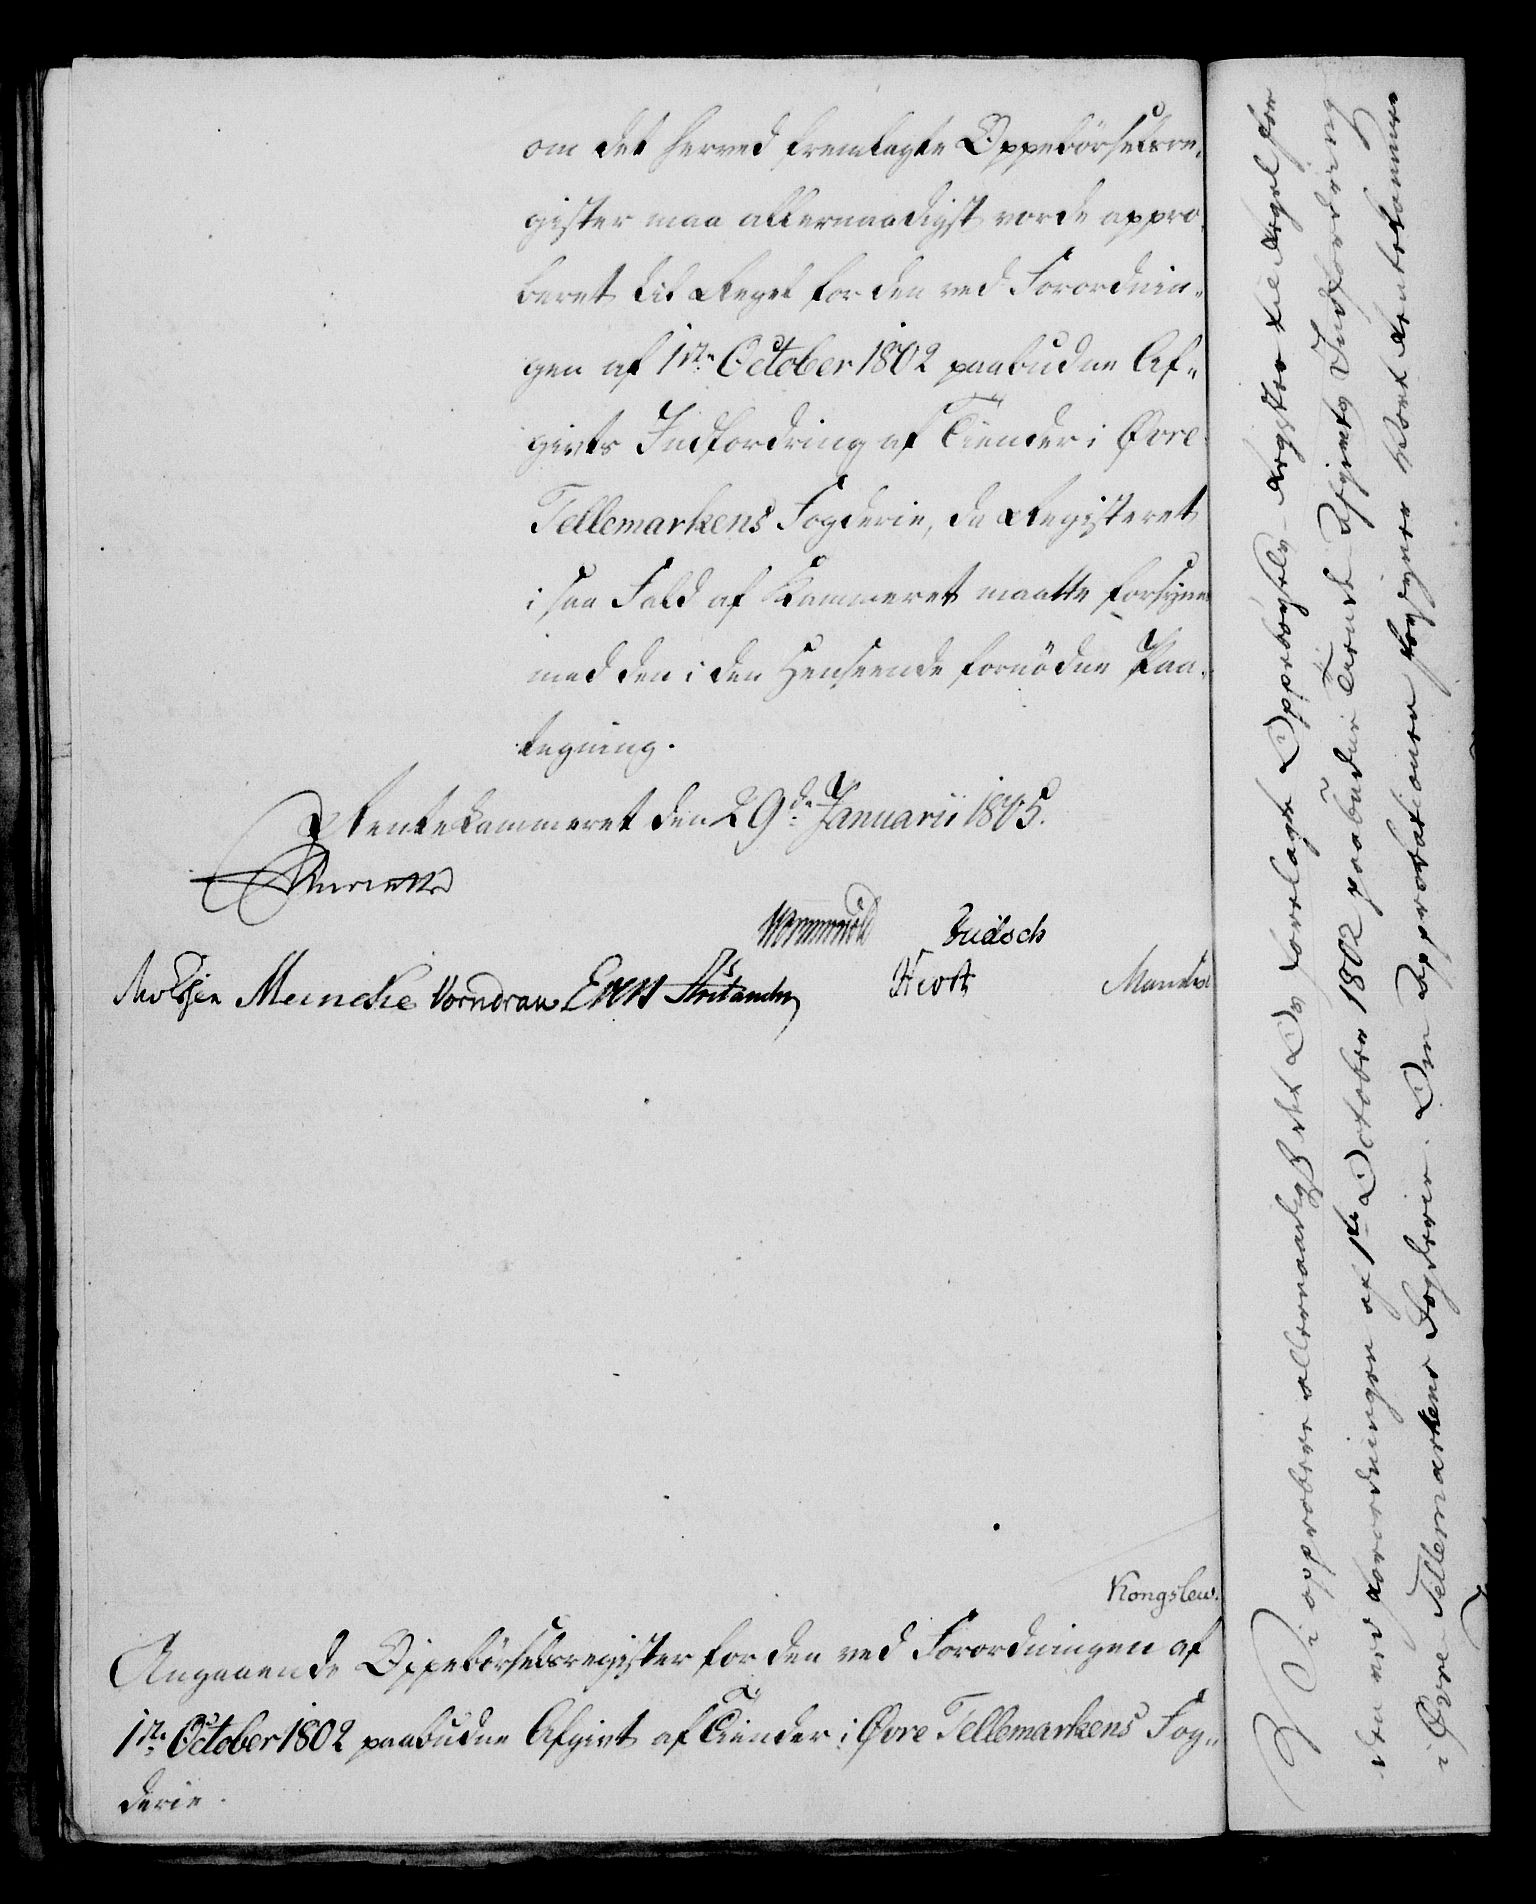 om det herved fremlagte Oppebörselsre-
gister maa allernaadigst vorde appro-
beret til Regel for den ved Forordnin-
gen af 1ste October 1802 paabudne Af-
givts Indfordring af Tiender i Øvre
Tellemarkens Fogderie, da Registeret
i saa Fald af Kammeret maatte forsynes
med den i den Henseende fornödne Paa-
tegning.
Rentekammeret den 29de Januarii 1805.
Wormskiold
Meincke Vorndran
Kongslew.
Angaaende Oppebörselsregister for den ved Forordningen af
1ste October 1802 paabudne Afgivt af Tiender i Øvre Tellemarkens Fog-
derie.
Vi approbere allernaadigst det Os forelagte Oppebørsels-Register til Regel for
den ved Forordningen af 1ste October 1802 paabudne Tiende Afgivts Indfordring
i Øvre-Tellemarkens Fogderie. Den Approbationen forsyner Vort Rentekammer